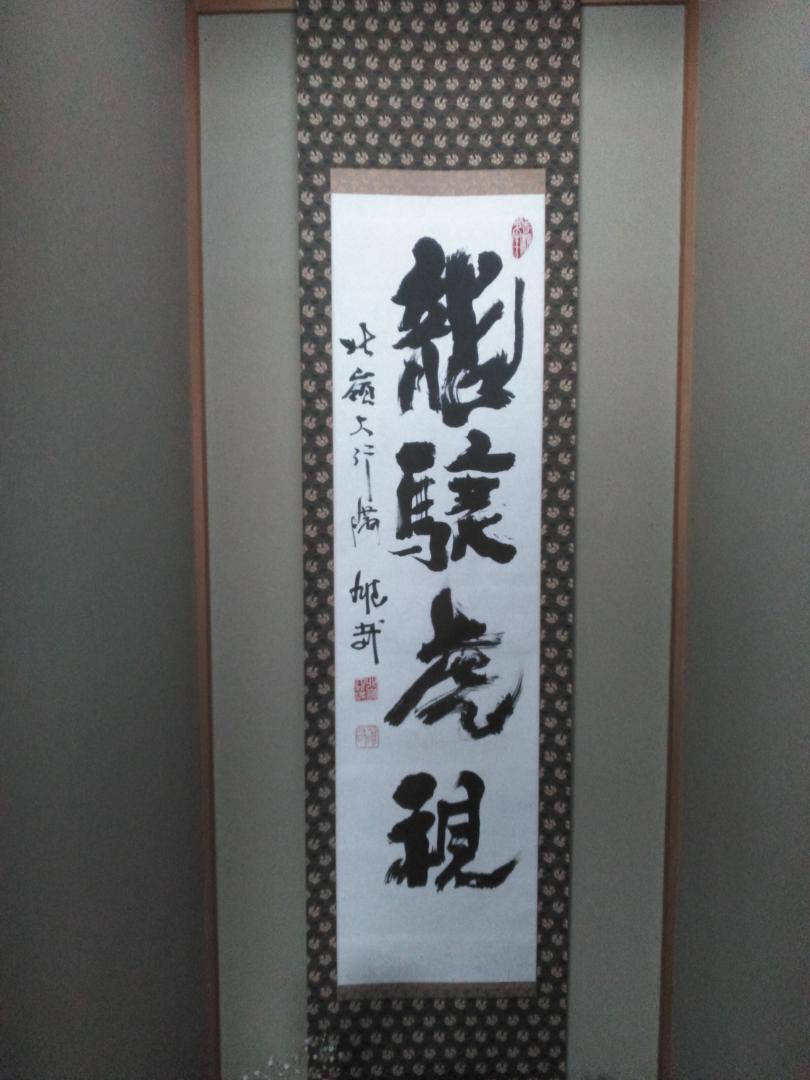 龍驤虎視
北嶺大行満 雄哉